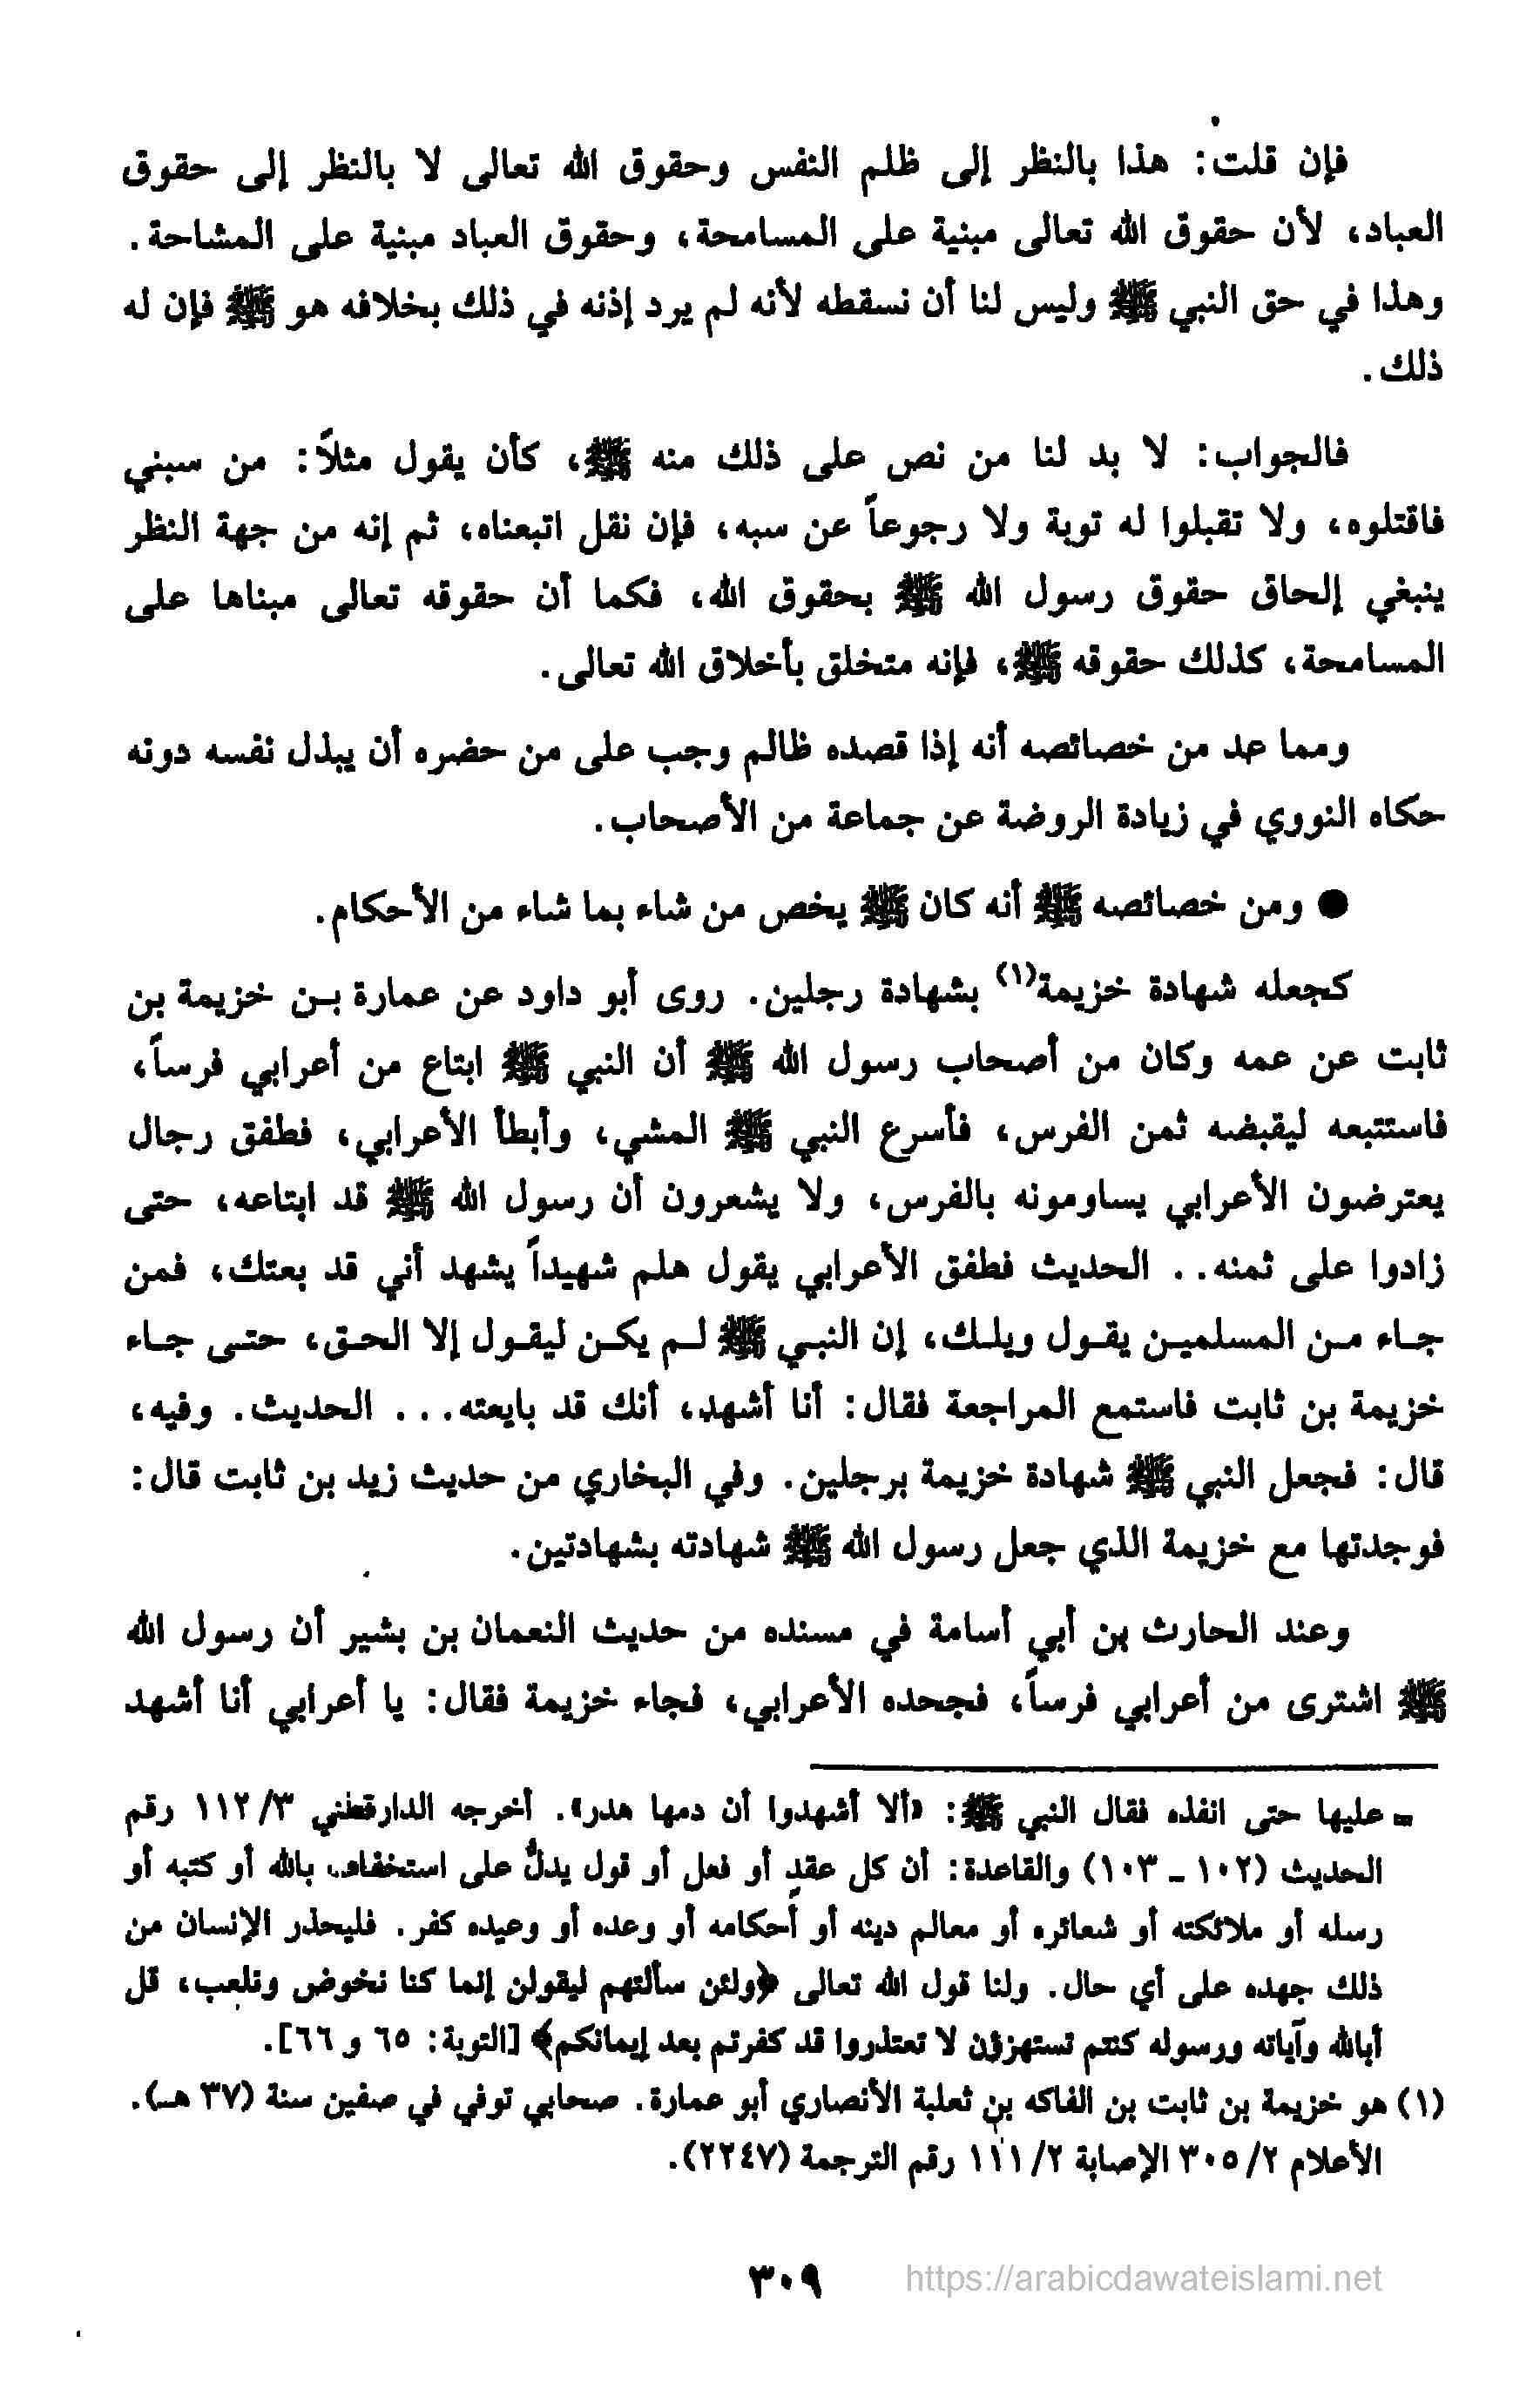 فإن قلت: هذا بالنظر إلى ظلم النفس وحقوق الله تعالى لا بالنظر إلى حقوق
العباد، لأن حقوق الله تعالى مبنية على المسامحة، وحقوق العباد مبنية على المشاحة.
وهذا في حق النبي ﷺ وليس لنا أن نسقطه لأنه لم يرد إذنه في ذلك بخلافه هو ﷺ فإن له
ذلك.
فالجواب: لا بد لنا من نص على ذلك منه ﷺ، كأن يقول مثلاً: من سبني
فاقتلوه، ولا تقبلوا له توبة ولا رجوعاً عن سبه، فإن نقل اتبعناه، ثم إنه من جهة النظر
ينبغي إلحاق حقوق رسول الله ﷺ بحقوق الله، فكما أن حقوقه تعالى مبناها على
المسامحة، كذلك حقوقه ﷺ، فإنه متخلق بأخلاق الله تعالى.
ومما عد من خصائصه أنه إذا قصده ظالم وجب على من حضره أن يبذل نفسه دونه
حكاه النووي في زيادة الروضة عن جماعة من الأصحاب.
● ومن خصائصه ﷺ أنه كان ﷺ يخص من شاء بما شاء من الأحكام.
كجعله شهادة خزيمة(١) بشهادة رجلين. روى أبو داود عن عمارة بن خزيمة بن
ثابت عن عمه وكان من أصحاب رسول الله ﷺ أن النبي ﷺ ابتاع من أعرابي فرساً،
فاستتبعه ليقبضه ثمن الفرس، فأسرع النبي ﷺ المشي، وأبطأ الأعرابي، فطفق رجال
يعترضون الأعرابي يساومونه بالفرس، ولا يشعرون أن رسول الله ﷺ قد ابتاعه، حتى
زادوا على ثمنه.. الحديث فطفق الأعرابي يقول هلم شهيداً يشهد أني قد بعتك، فمن
جاء من المسلمين يقول ويلك، إن النبي ﷺ لم يكن ليقول إلا الحق، حتى جاء
خزيمة بن ثابت فاستمع المراجعة فقال: أنا أشهد، أنك قد بايعته... الحديث. وفيه،
قال: فجعل النبي ﷺ شهادة خزيمة برجلين. وفي البخاري من حديث زيد بن ثابت قال:
فوجدتها مع خزيمة الذي جعل رسول الله ﷺ شهادته بشهادتين.
وعند الحارث بن أبي أسامة في مسنده من حديث النعمان بن بشير أن رسول الله
ﷺ اشترى من أعرابي فرساً، فجحده الأعرابي، فجاء خزيمة فقال: يا أعرابي أنا أشهد
= عليها حتى انفذه فقال النبي ﷺ: «ألا أشهدوا أن دمها هدر». أخرجه الدارقطني ١١٢/٣ رقم
الحديث (١٠٢ - ١٠٣) والقاعدة: أن كل عقدٍ أو فعل أو قول يدلُّ على استخفاف بالله أو كتبه أو
رسله أو ملائكته أو شعائره أو معالم دينه أو أحكامه أو وعده أو وعيده كفر. فليحذر الإنسان من
ذلك جهده على أي حال. ولنا قول الله تعالى ﴿ولئن سألتهم ليقولن إنما كنا نخوض ونلعب، قل
أبالله وآياته ورسوله كنتم تستهزؤن لا تعتذروا قد كفرتم بعد إيمانكم﴾ [التوبة: ٦٥ و ٦٦].
(١) هو خزيمة بن ثابت بن الفاكه بن ثعلبة الأنصاري أبو عمارة. صحابي توفي في صفين سنة (٣٧ هـ).
الأعلام ٣٠٥/٢ الإصابة ١١١/٢ رقم الترجمة (٢٢٤٧).
٣٠٩
https://arabicdawateislami.net